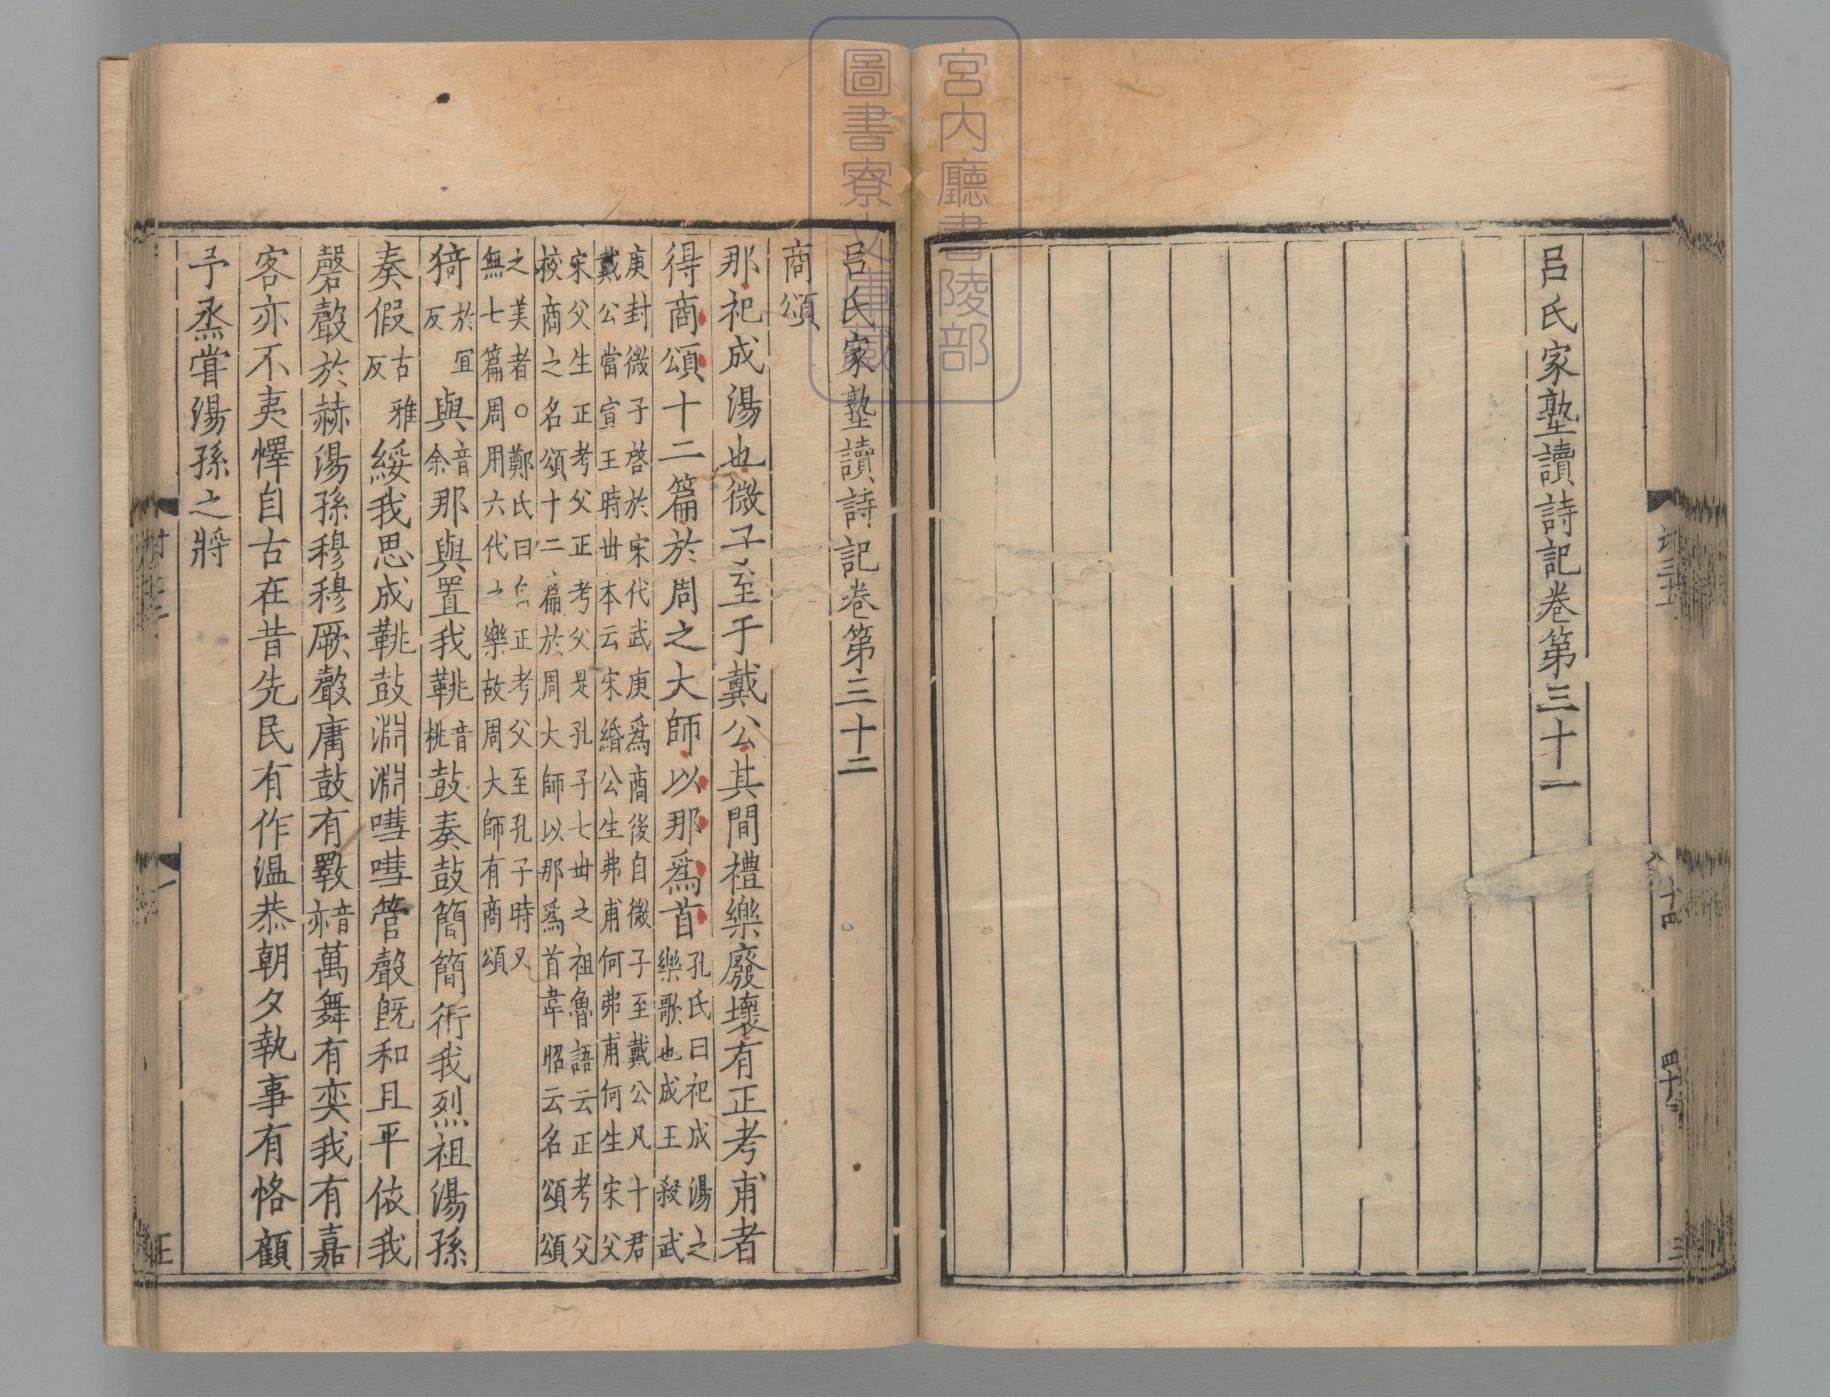 宮内廳書陵部
圖書寮文庫蔵
呂氏家塾讀詩記卷第三十一
十四
呂氏家塾讀詩記卷第三十二
商頌
那祀成湯也微子至于戴公其間禮樂廢壞有正考甫者
得商頌十二篇於周之大師以那爲首孔氏曰祀成湯之樂歌也成王殺武
庚封微子啓於宋代武庚爲商後自微子至戴公凡十君
戴公當宣王時丗本云宋緡公生弗甫何弗甫何生宋父
宋父生正考父正考父是孔子七丗之祖魯語云正考父
校商之名頌十二篇於周大師以那爲首韋昭云名頌頌
之美者○鄭氏曰自正考父至孔子時又
無七篇周用六代之樂故周大師有商頌
猗於宜反與音余那與置我鞉音桃鼓奏鼓簡簡衎我烈祖湯孫
奏假古雅反綏我思成鞉鼓淵淵嘒嘒管聲旣和且平依我
磬聲於赫湯孫穆穆厥聲庸鼓有斁音亦萬舞有奕我有嘉
客亦不夷懌自古在昔先民有作温恭朝夕執事有恪顧
予烝甞湯孫之將